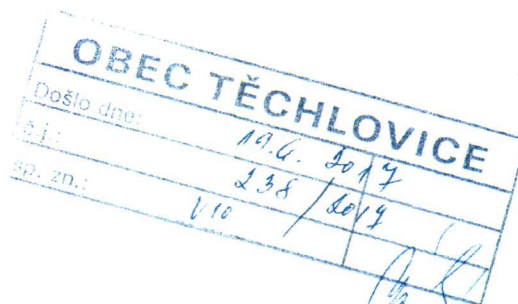 OBEC TĚCHLOVICE
Došlo dne: 19.6. 2017
č.j.: 238 / 2017
sp. zn.: V10